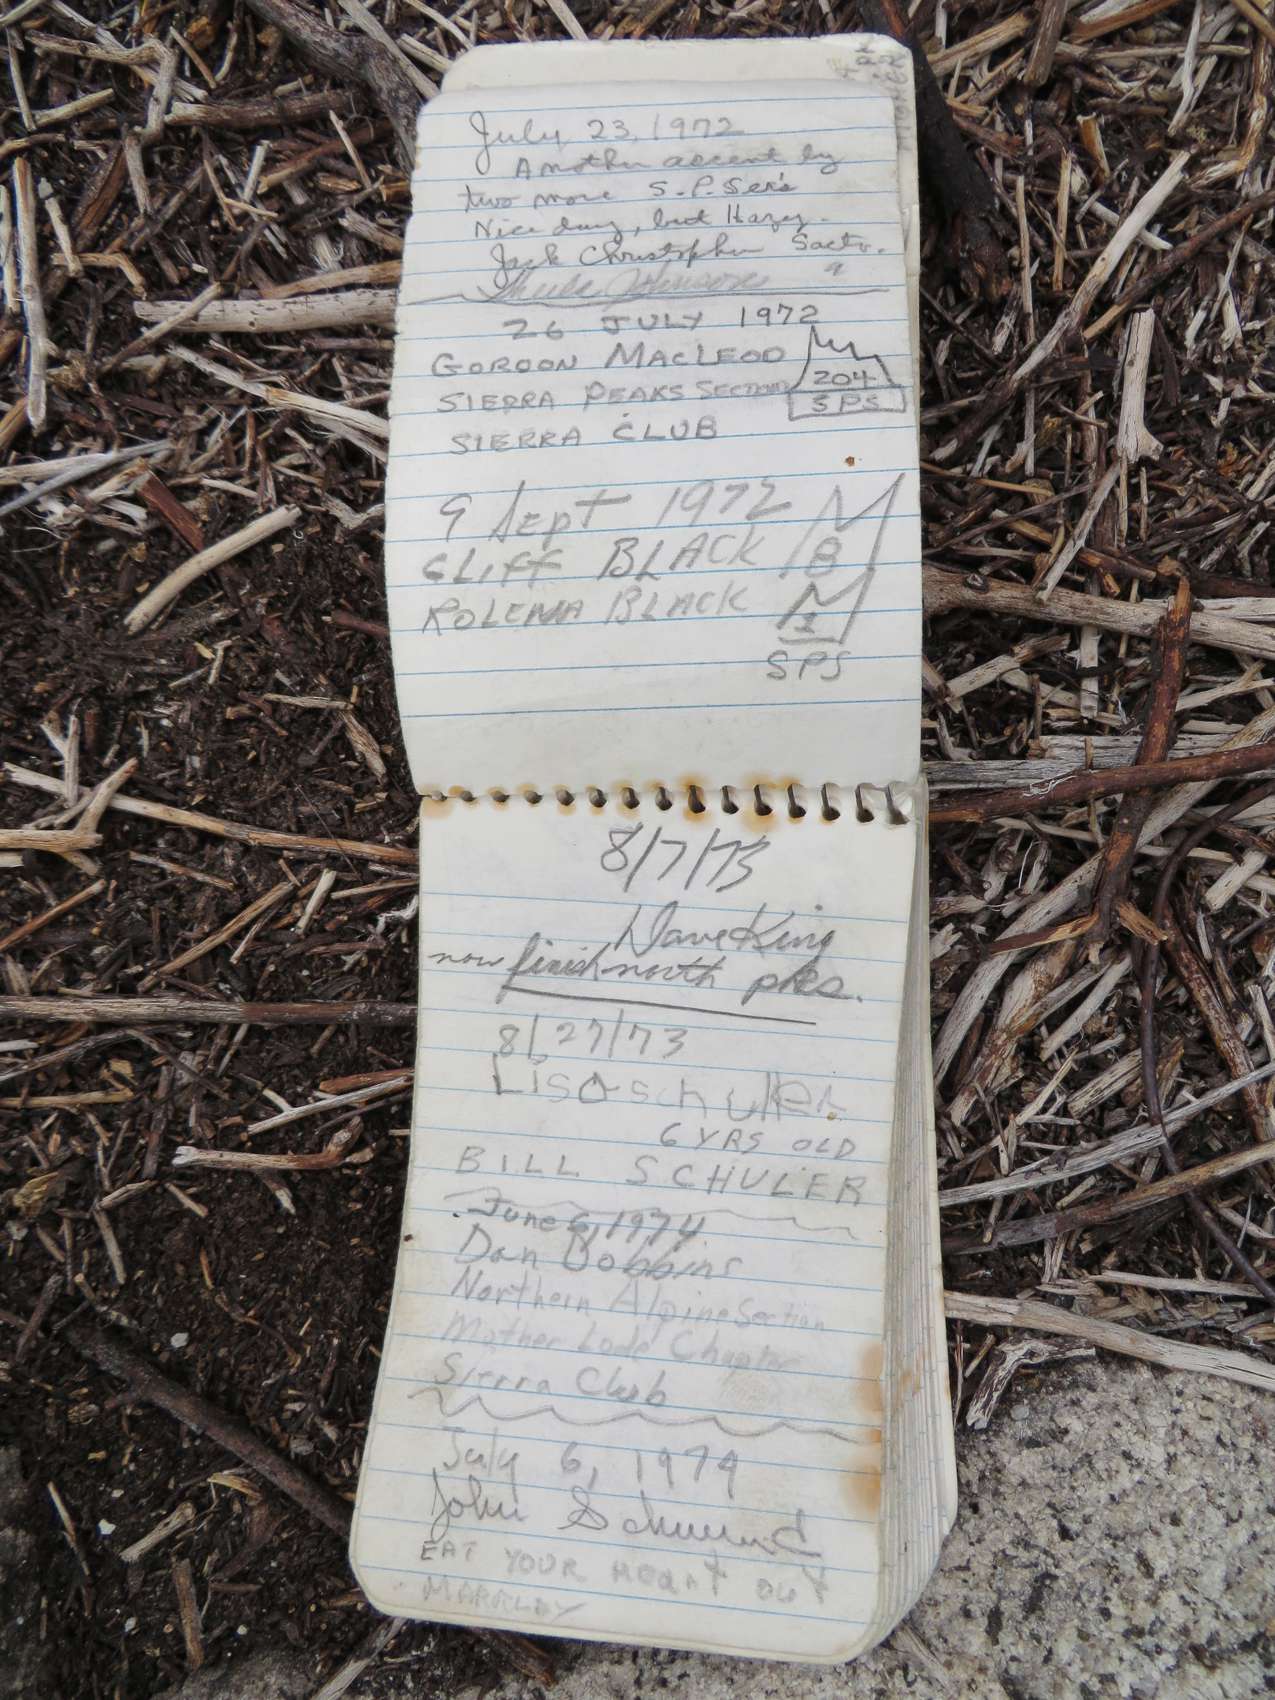 July 23, 1972
Another ascent by
two more S.P.Ser's
Nice day, but Hazy.
Jack Christopher Sacto.
Johnson "
26 JULY 1972
GORDON MACLEOD
204
SIERRA PEAKS SECTION
SPS
SIERRA CLUB
9 Sept 1972
CLIFF BLACK 8
ROLENA BLACK 1
SPS
8/7/73
Dave King
now finish north pks.
8/27/73
Lisa Schuler
6 YRS OLD
BILL SCHULER
June 6, 1974
Dan Dobbins
Northern Alpine Section
Mother Lode Chapter
Sierra Club
July 6, 1974
John
EAT YOUR HEART OUT